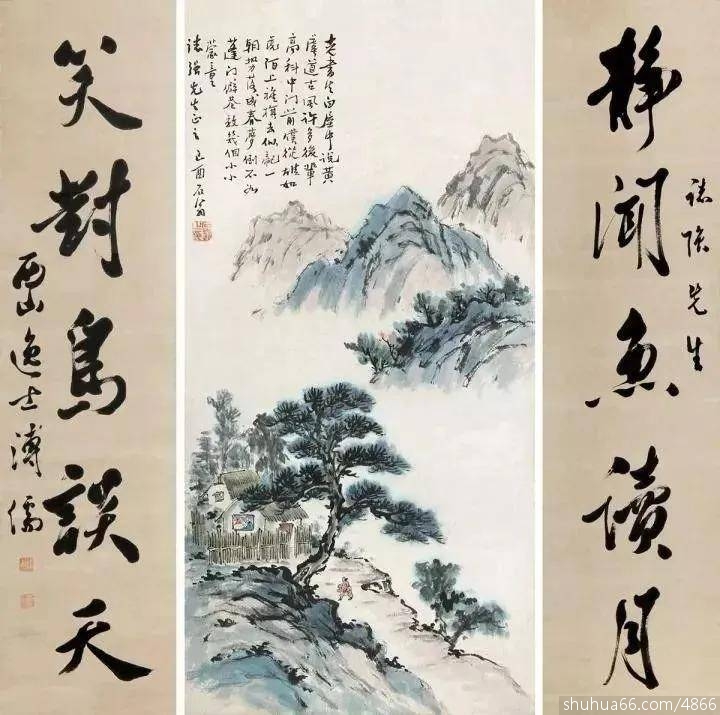 靜聞魚讀月
先生
老書生白屋中說黃
虞道古風許多後輩
高科中門前僕從雄如
虎陌上旌旗去似龍一
朝勢落成春夢倒不如
蓬門僻巷教幾個小小
蒙童
先生正之 己酉石翁
笑對鳥談天
西山逸士溥儒
shuhua66.com/4866